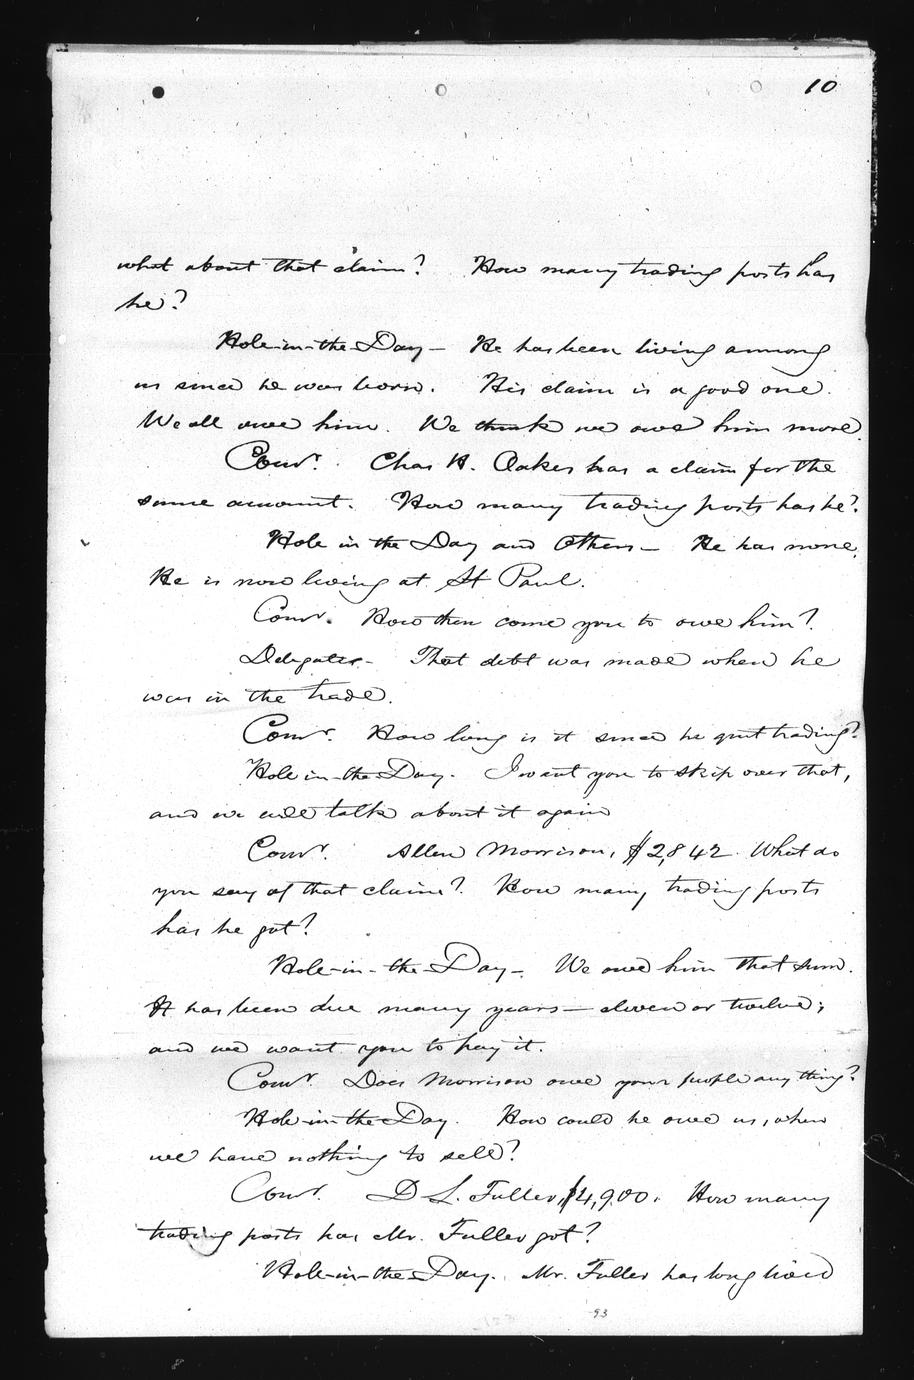 10
what about that claim? How many trading posts has
he?
Hole-in-the-Day— He has been living among
us since he was born. His claim is a good one.
We all owe him. We think we owe him more.
Comr. Chas H. Oakes has a claim for the
same amount. How many trading posts has he?
Hole in the Day and Others— He has none.
He is now living at St Paul.
Comr. How then come you to owe him?
Delegates— That debt was made when he
was in the trade.
Comr. How long is it since he quit trading?
Hole in-the-Day. I want you to skip over that,
and we will talk about it again
Comr. Allen Morrison, $2,842. What do
you say of that claim? How many trading posts
has he got?
Hole-in-the-Day— We owe him that sum.
It has been due many years—eleven or twelve;
and we want you to pay it.
Comr. Does Morrison owe your people any thing?
Hole-in-the-Day. How could he owe us, when
we have nothing to sell?
Comr. D L. Fuller, $4,900. How many
trading posts has Mr. Fuller got?
Hole-in-the-Day. Mr. Fuller has long lived
93